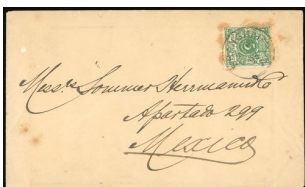 Messrs Sommer Herrmann & Co
Apartado 299
Mexico